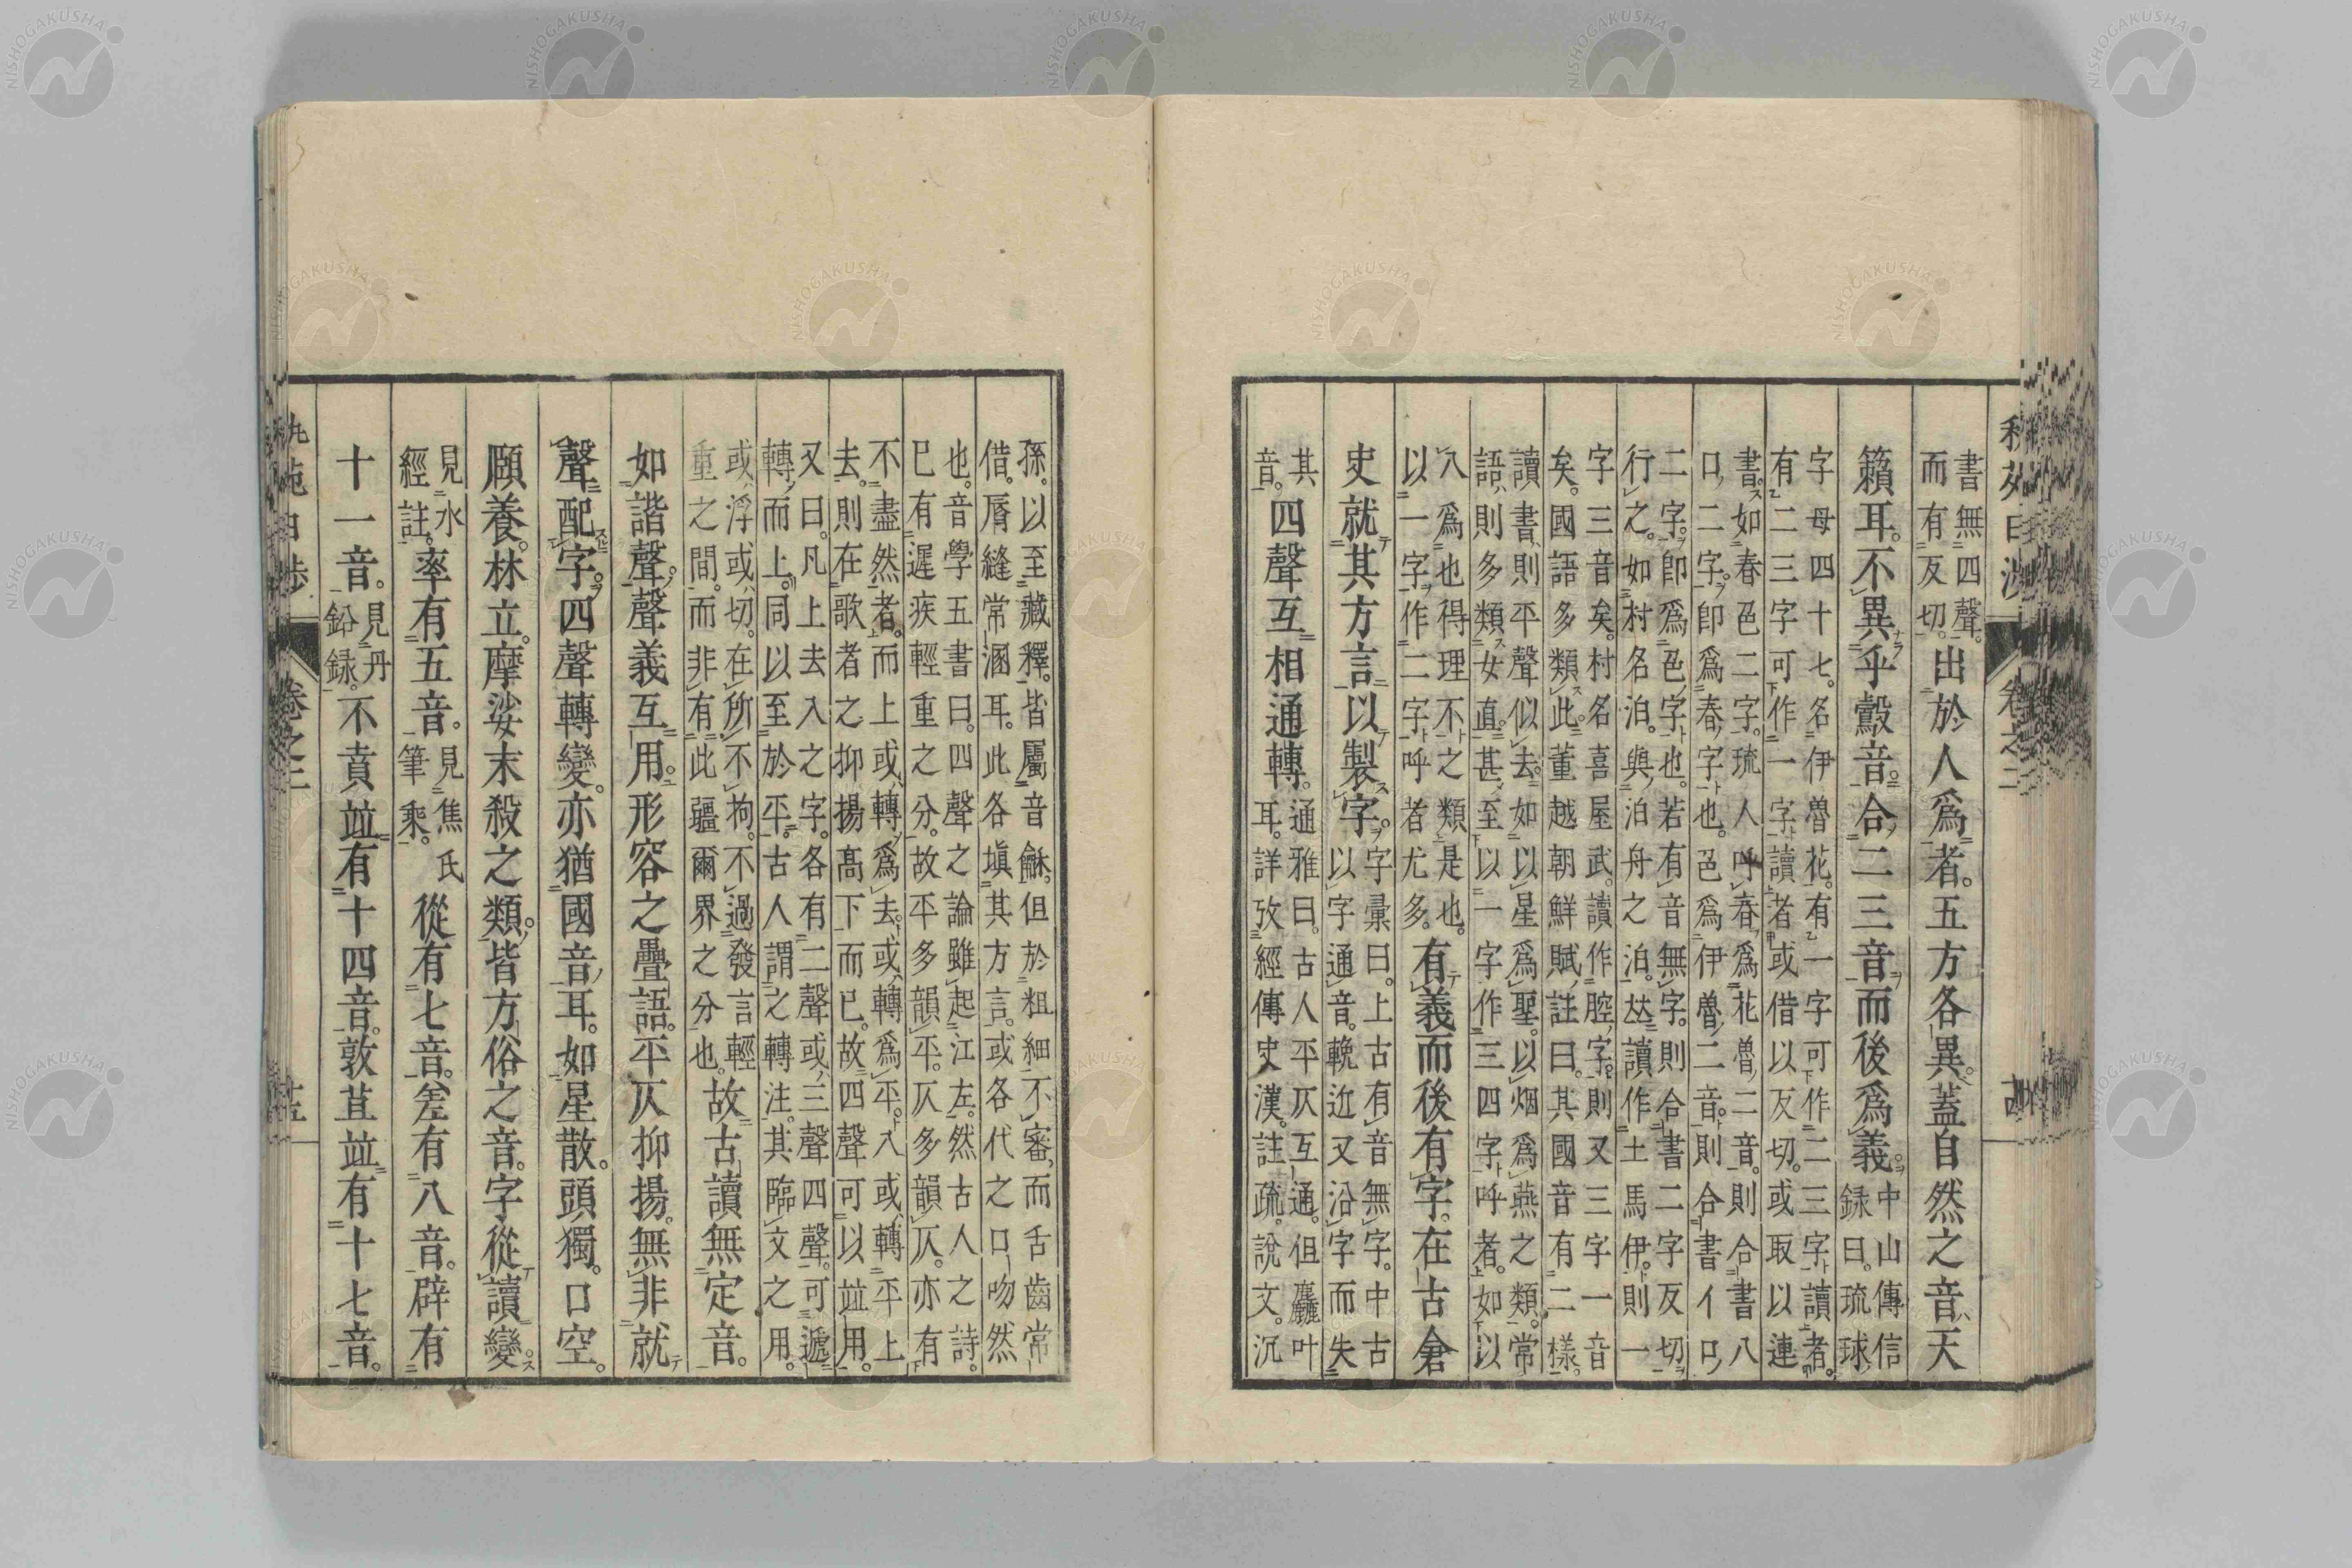 秇苑日渉 卷之二
書無四聲。
而有反切。
出於人爲者。五方各異。蓋自然之音。天
籟耳。不異乎鷇音。合二三音而後爲義。
中山傳信
錄曰。琉球
字母四十七。名伊魯花。有一字可作二三字讀者。
有二三字可作一字讀者。或借以反切。或取以連
書。如春色二字。琉人呼春爲花魯二音。則合書八
口二字。卽爲春字也。色爲伊魯二音。則合書イロ
二字。卽爲色字也。若有音無字。則合書二字反切
行之。如村名泊與泊舟之泊。𠀋讀作土馬伊。則一
字三音矣。村名喜屋武。讀作腔字。則又三字一音
矣。國語多類此。董越朝鮮賦註曰。其國音有二樣。
讀書則平聲似去。如以星爲聖。以烟爲燕之類。常
語則多類女直。甚至以一字作三四字呼者。如以
八爲也得理不之類是也。
以一字作二字呼者尤多。
有義而後有字。在古倉
史就其方言以製字。
字彙曰。上古有音無字。中古
以字通音。輓近又沿字而失
其
音。
四聲互相通轉。
通雅曰。古人平仄互通。但麤叶
耳。詳攷經傳史漢註疏。說文。沉
孫。以至藏釋。皆屬音龢。但於粗細不審。而舌齒常
借。脣縫常溷耳。此各塡其方言。或各代之口吻然
也。音學五書曰。四聲之論雖起江左。然古人之詩。
已有遲疾輕重之分。故平多韻平。仄多韻仄。亦有
不盡然者。而上或轉爲去。去或轉爲平。入或轉平上
去。則在歌者之抑揚高下而已。故四聲可以竝用。
又曰。凡上去入之字。各有二聲或三聲四聲。可遞
轉而上。同以至於平。古人謂之轉注。其臨文之用。
或浮或切。在所不拘。不過發言輕
重之間。而非有此疆爾界之分也。
故古讀無定音。
如諧聲。聲義互用。形容之疊語。平仄抑揚。無非就
聲配字。四聲轉變。亦猶國音耳。如星散。頭獨。口空。
頤養。林立。摩娑末殺之類。皆方俗之音。字從讀變。
見水
經註。
率有五音。
見焦氏
筆乘。
從有七音。差有八音。辟有
十一音。
見丹
鉛錄。
不賁竝有十四音。敦苴竝有十七音。
卷之二 十五